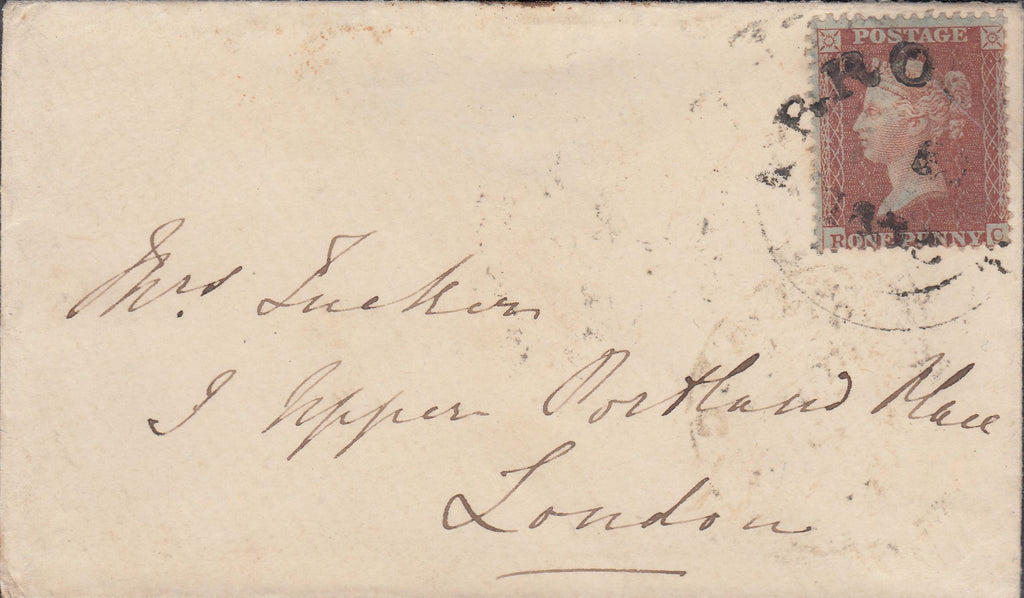 POSTAGE
ARRO
R ONE PENNY C
Mrs. Tucker
9 Upper Portland Place
London